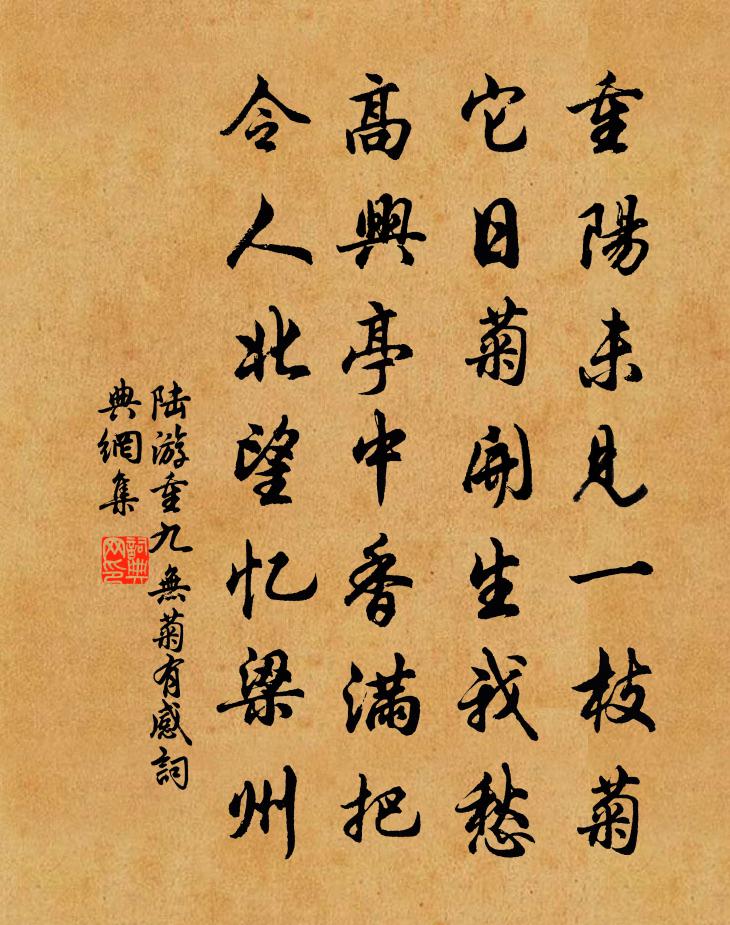 重陽未見一枝菊
它日菊開生我愁
高興亭中香滿把
令人北望忆梁州
陆游重九無菊有感詞
典網集
詞典網印